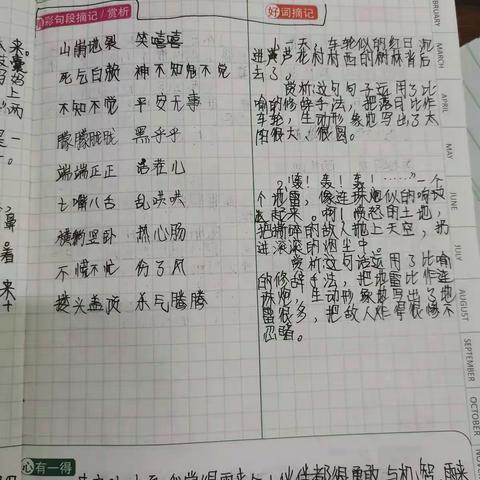 精彩句段摘记/赏析
山崩地裂 笑嘻嘻
死气白赖 神不知鬼不觉
不知不觉 平安无事
朦朦胧胧 黑乎乎
端端正正 活茬儿
七嘴八舌 乱哄哄
横躺竖卧 热心肠
不慌不忙 伤了风
搂头盖顶 杀气腾腾
好词摘记
1、一天,车轮似的红日沉
进芦花村西的树林背后
去了。
赏析这句句子运用了比
喻的修辞手法,把落日比作
车轮,生动形象地写出了太
阳很大、很圆。
2、"轰!轰!轰!……"一个
个地雷,像连珠炮似的响
起来。啊!愤怒的土地,
把撕碎的敌人抛上天空,扔
进滚滚的烟尘中。
赏析这句话运用了比喻
的修辞手法,把地雷比作连
珠炮,生动形象地写出了地
雷很多,把敌人炸得很惨不
忍睹。
FEBRUARY
MARCH
APRIL
MAY
JUNE
JULY
AUGUST
SEPTEMBER
OCTOBER
心有一得
来。
上
两
是一
。
着
来
十